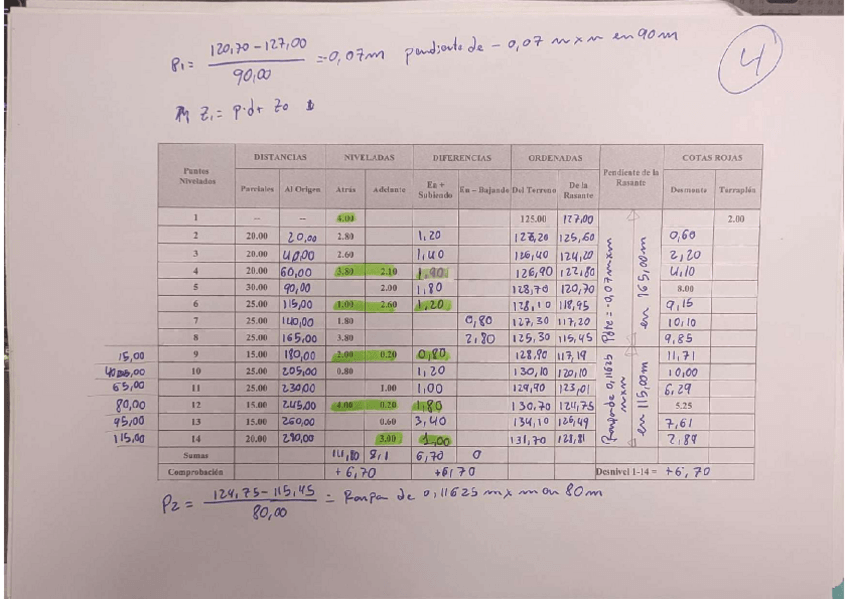 P1 = 120,70 – 127,00 / 90,00 = -0,07m pendiente de – 0,07 m x m en 90m
4
Z1 = p·d + Z0
Puntos Nivelados DISTANCIAS NIVELADAS DIFERENCIAS ORDENADAS Pendiente de la Rasante COTAS ROJAS
Parciales Al Origen Atrás Adelante En + Subiendo En – Bajando Del Terreno De la Rasante Desmonte Terraplén
1 -- -- 4.00 125.00 127,00 2.00
2 20.00 20,00 2.80 1,20 126,20 125,60 0,60
3 20.00 40,00 2.60 1,40 126,40 124,20 2,20
4 20.00 60,00 3.80 2.10 1,90 126,90 122,80 4,10
5 30.00 90,00 2.00 1,80 128,70 120,70 8.00
6 25.00 115,00 1.00 2.60 1,20 128,10 118,95 9,15
7 25.00 140,00 1.80 0,80 127,30 117,20 10,10
8 25.00 165,00 3.80 2,80 125,30 115,45 9,85
15,00 9 15.00 180,00 2.00 0.20 0,80 128,90 117,19 11,71
40,00 10 25.00 205,00 0.80 1,20 130,10 120,10 10,00
65,00 11 25.00 230,00 1.00 1,00 129,90 123,01 6,29
80,00 12 15.00 245,00 4.00 0.20 1,80 130,70 124,75 5.25
95,00 13 15.00 260,00 0.60 3,40 134,10 126,49 7,61
115,00 14 20.00 280,00 3.00 1,00 131,70 128,81 2,89
Pdte = -0,07mxm en 165,00m
Rampa de 0,11625 mxm en 115,00m
Sumas 14,80 8,1 6,70 0
Comprobación +6,70 +6,70 Desnivel 1-14 = +6,70
P2 = 124,75 – 115,45 / 80,00 = Rampa de 0,11625 m x m en 80m